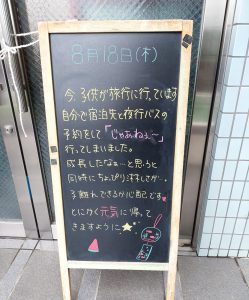 8月18日(木)
今、子供が旅行に行っています
自分で宿泊先と夜行バスの
予約をして「じゃあねぇ〜」
行ってしまいました。
成長したなぁ…と思うと
同時にちょっぴり淋しさが…
子離れできるか心配です
とにかく元気に帰って
きますように★